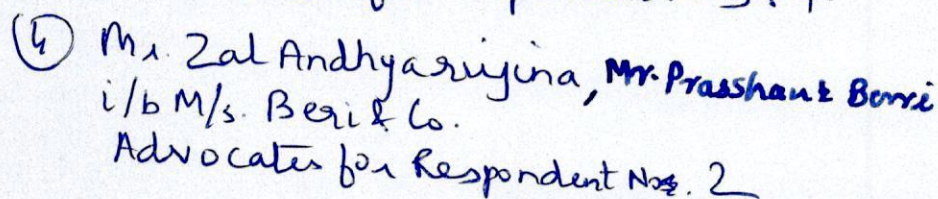 ④ Mr. Zal Andhyarujina, Mr. Prasshant Beri
i/b M/s. Beri & Co.
Advocates for Respondent Nos. 2